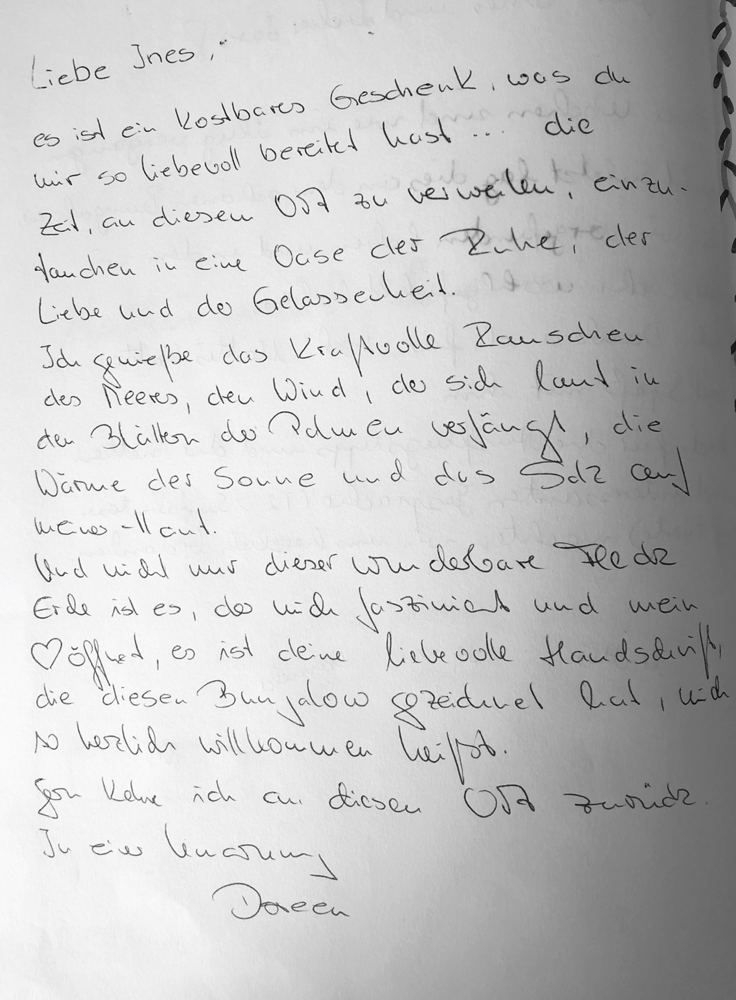 Liebe Ines,
es ist ein kostbares Geschenk, was du
mir so liebevoll bereitet hast ... die
Zeit, an diesen Ort zu verweilen, einzu-
tauchen in eine Oase der Ruhe, der
Liebe und der Gelassenheit.
Ich genieße das kraftvolle Rauschen
des Meeres, den Wind, der sich laut in
den Blättern der Palmen verfängt, die
Wärme der Sonne und das Salz auf
meiner Haut.
Und nicht nur dieser wunderbare Fleck
Erde ist es, der mich fasziniert und mein
♡ öffnet, es ist deine liebevolle Handschrift,
die diesen Bungalow gezeichnet hat, mich
so herzlich willkommen heißt.
Gern kehre ich an diesen Ort zurück.
In einer Umarmung
Doreen